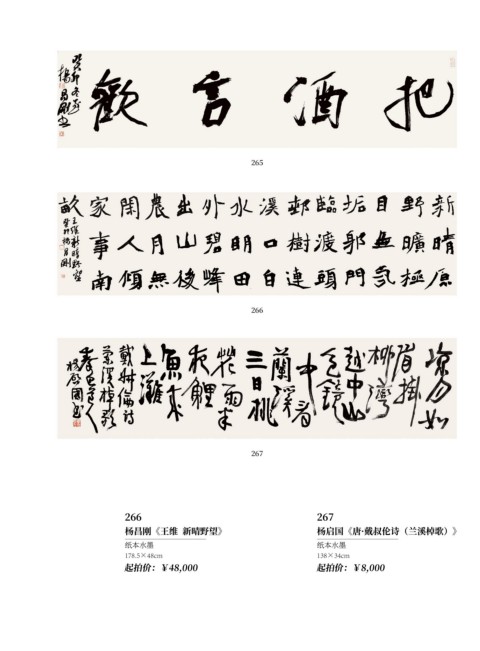 把酒言歡
楊昌剛書
265
新晴原
野曠極
目無氛
垢郭門
臨渡頭
邨樹連
溪口白
水明田
外碧峰
出山後
農月無
閑人傾
家事南
畝
王維新晴野望
癸卯楊昌剛
266
涼月如
眉掛
柳灣
越中山
色鏡
中看
蘭溪
三日桃
花雨半
夜鯉
魚來
上灘
戴叔倫詩
蘭溪棹歌
楊啟國書
267
266
杨昌刚《王维 新晴野望》
纸本水墨
178.5×48cm
起拍价：￥48,000
267
杨启国《唐·戴叔伦诗（兰溪棹歌）》
纸本水墨
138×34cm
起拍价：￥8,000